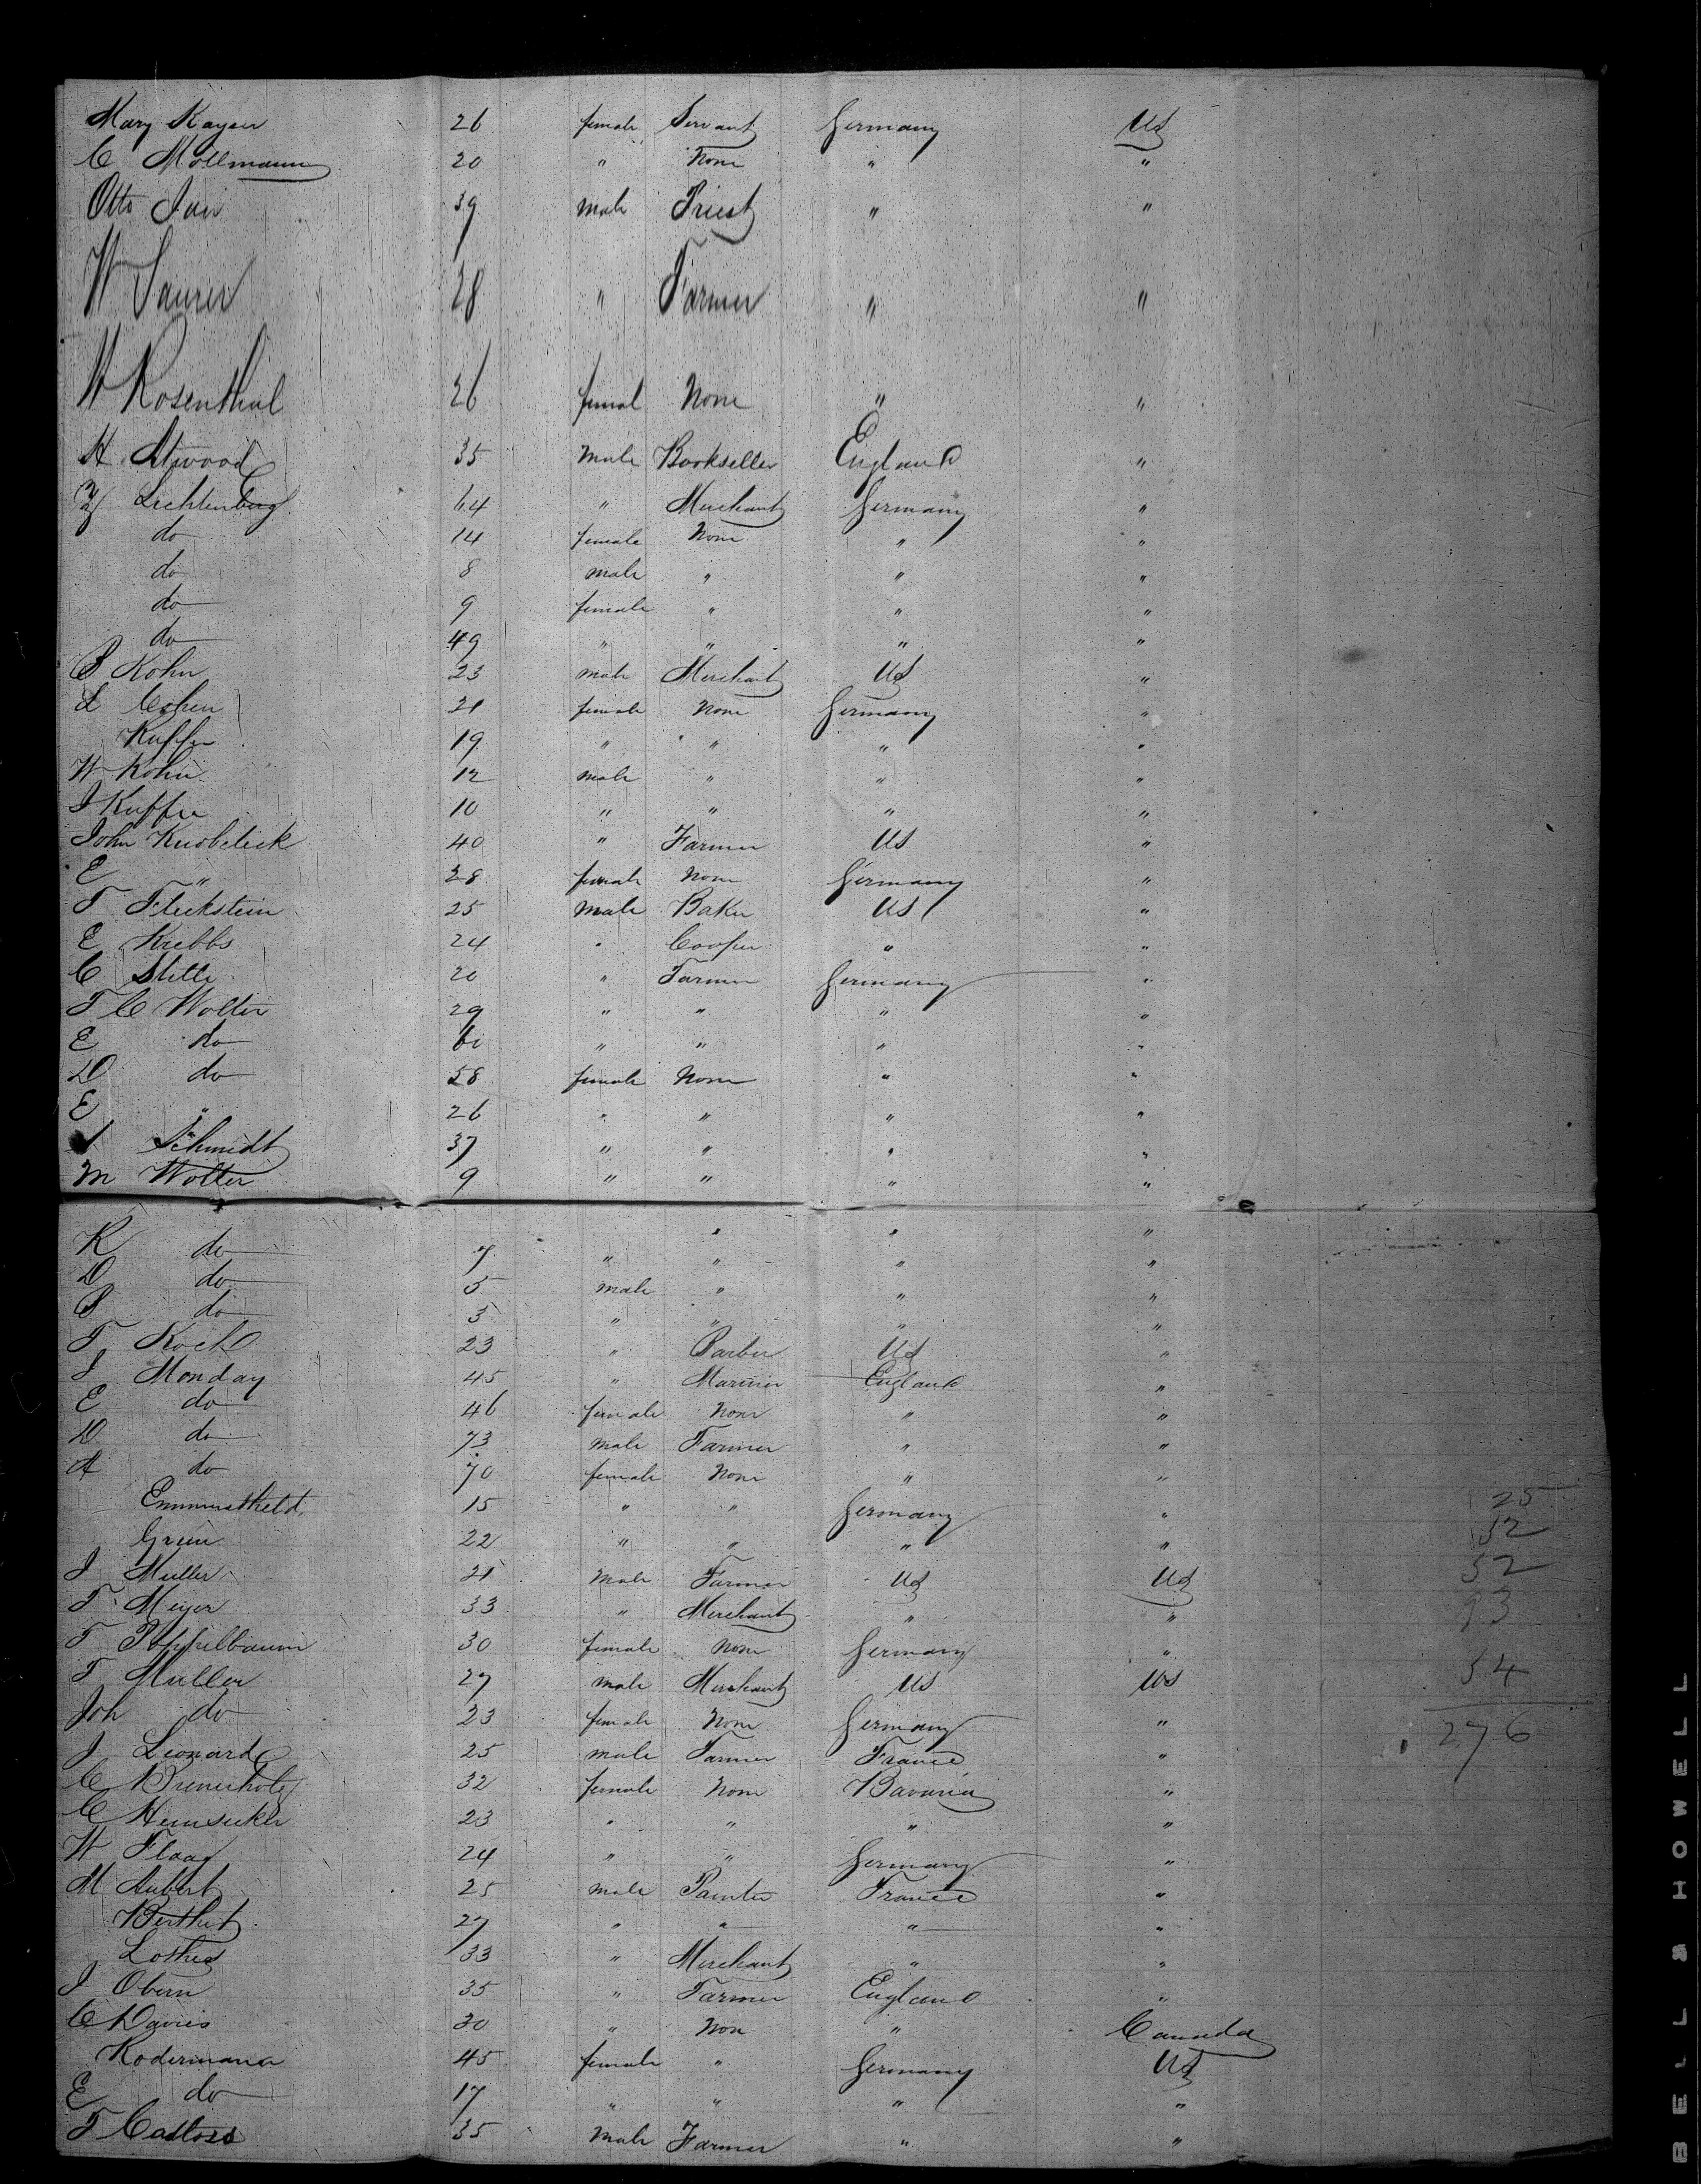 Mary Kayser 26 female Servant Germany US
C Mollmann 20 " None " "
Otto 39 male Priest " "
W Saurer 28 " Farmer " "
W Rosenthal 26 femal None " "
H Atwood 35 Male Bookseller England "
Lichtenberg 64 " Merchant Germany "
do 14 female None " "
do 8 male " " "
do 9 female " " "
do 49 " " " "
B Kohn 23 male Merchant US "
L Cohen 21 female None Germany "
Kuffer 19 " " " "
W Kohn 12 male " " "
I Kuffer 10 " " " "
John 40 " Farmer US "
E " 28 female None Germany "
F Fleckstein 25 Male Baker US "
E Krebbs 24 " Cooper " "
C 20 " Farmer Germany "
F C Wolter 29 " " " "
E do 60 " " " "
D do 58 female None " "
E " 26 " " " "
Schmidt 37 " " " "
M Wolter 9 " " " "
" " "
K do 7 " " " "
D do 5 male " " "
B do 3 " " " "
F Koch 23 " Barber US "
J Monday 45 " Mariner England "
E do 46 female None " "
D do 73 male Farmer " "
A do 70 female None " "
15 " " Germany " 25
Grun 22 " " " " 52
J Muller 21 Male Farmer US US 52
F Meyer 33 " Merchant " " 93
F 30 female None Germany "
F Muller 27 male Merchant US US 54
Joh do 23 female None Germany " 276
J Leonard 25 male Farmer France "
C 32 female None Bavaria "
C 23 " " " "
W Flaag 24 " " Germany "
M Aubert 25 male Painter France "
Berthet 27 " " " "
33 " Merchant " "
J Obern 35 " Farmer England "
C Davies 30 " Non " Cannada
Kodermana 45 female " Germany US
E do 17 " " " "
F 35 Male Farmer " "
BELL & HOWELL